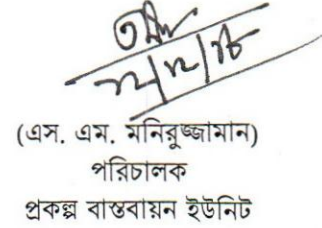 (এস. এম. মনিরুজ্জামান)
পরিচালক
প্রকল্প বাস্তবায়ন ইউনিট